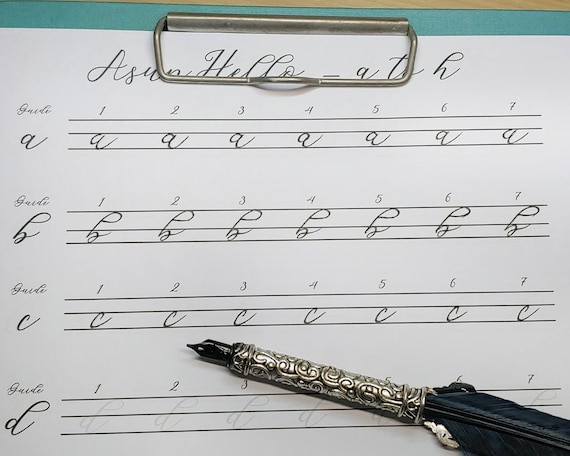 Asun Hello - a to h
Guide 1 2 3 4 5 6 7
a a a a a a a a
Guide 1 2 3 4 5 6 7
b b b b b b b b
Guide 1 2 3 4 5 6 7
c c c c c c c c
Guide 1 2 3 4 5 6 7
d d d d d d d